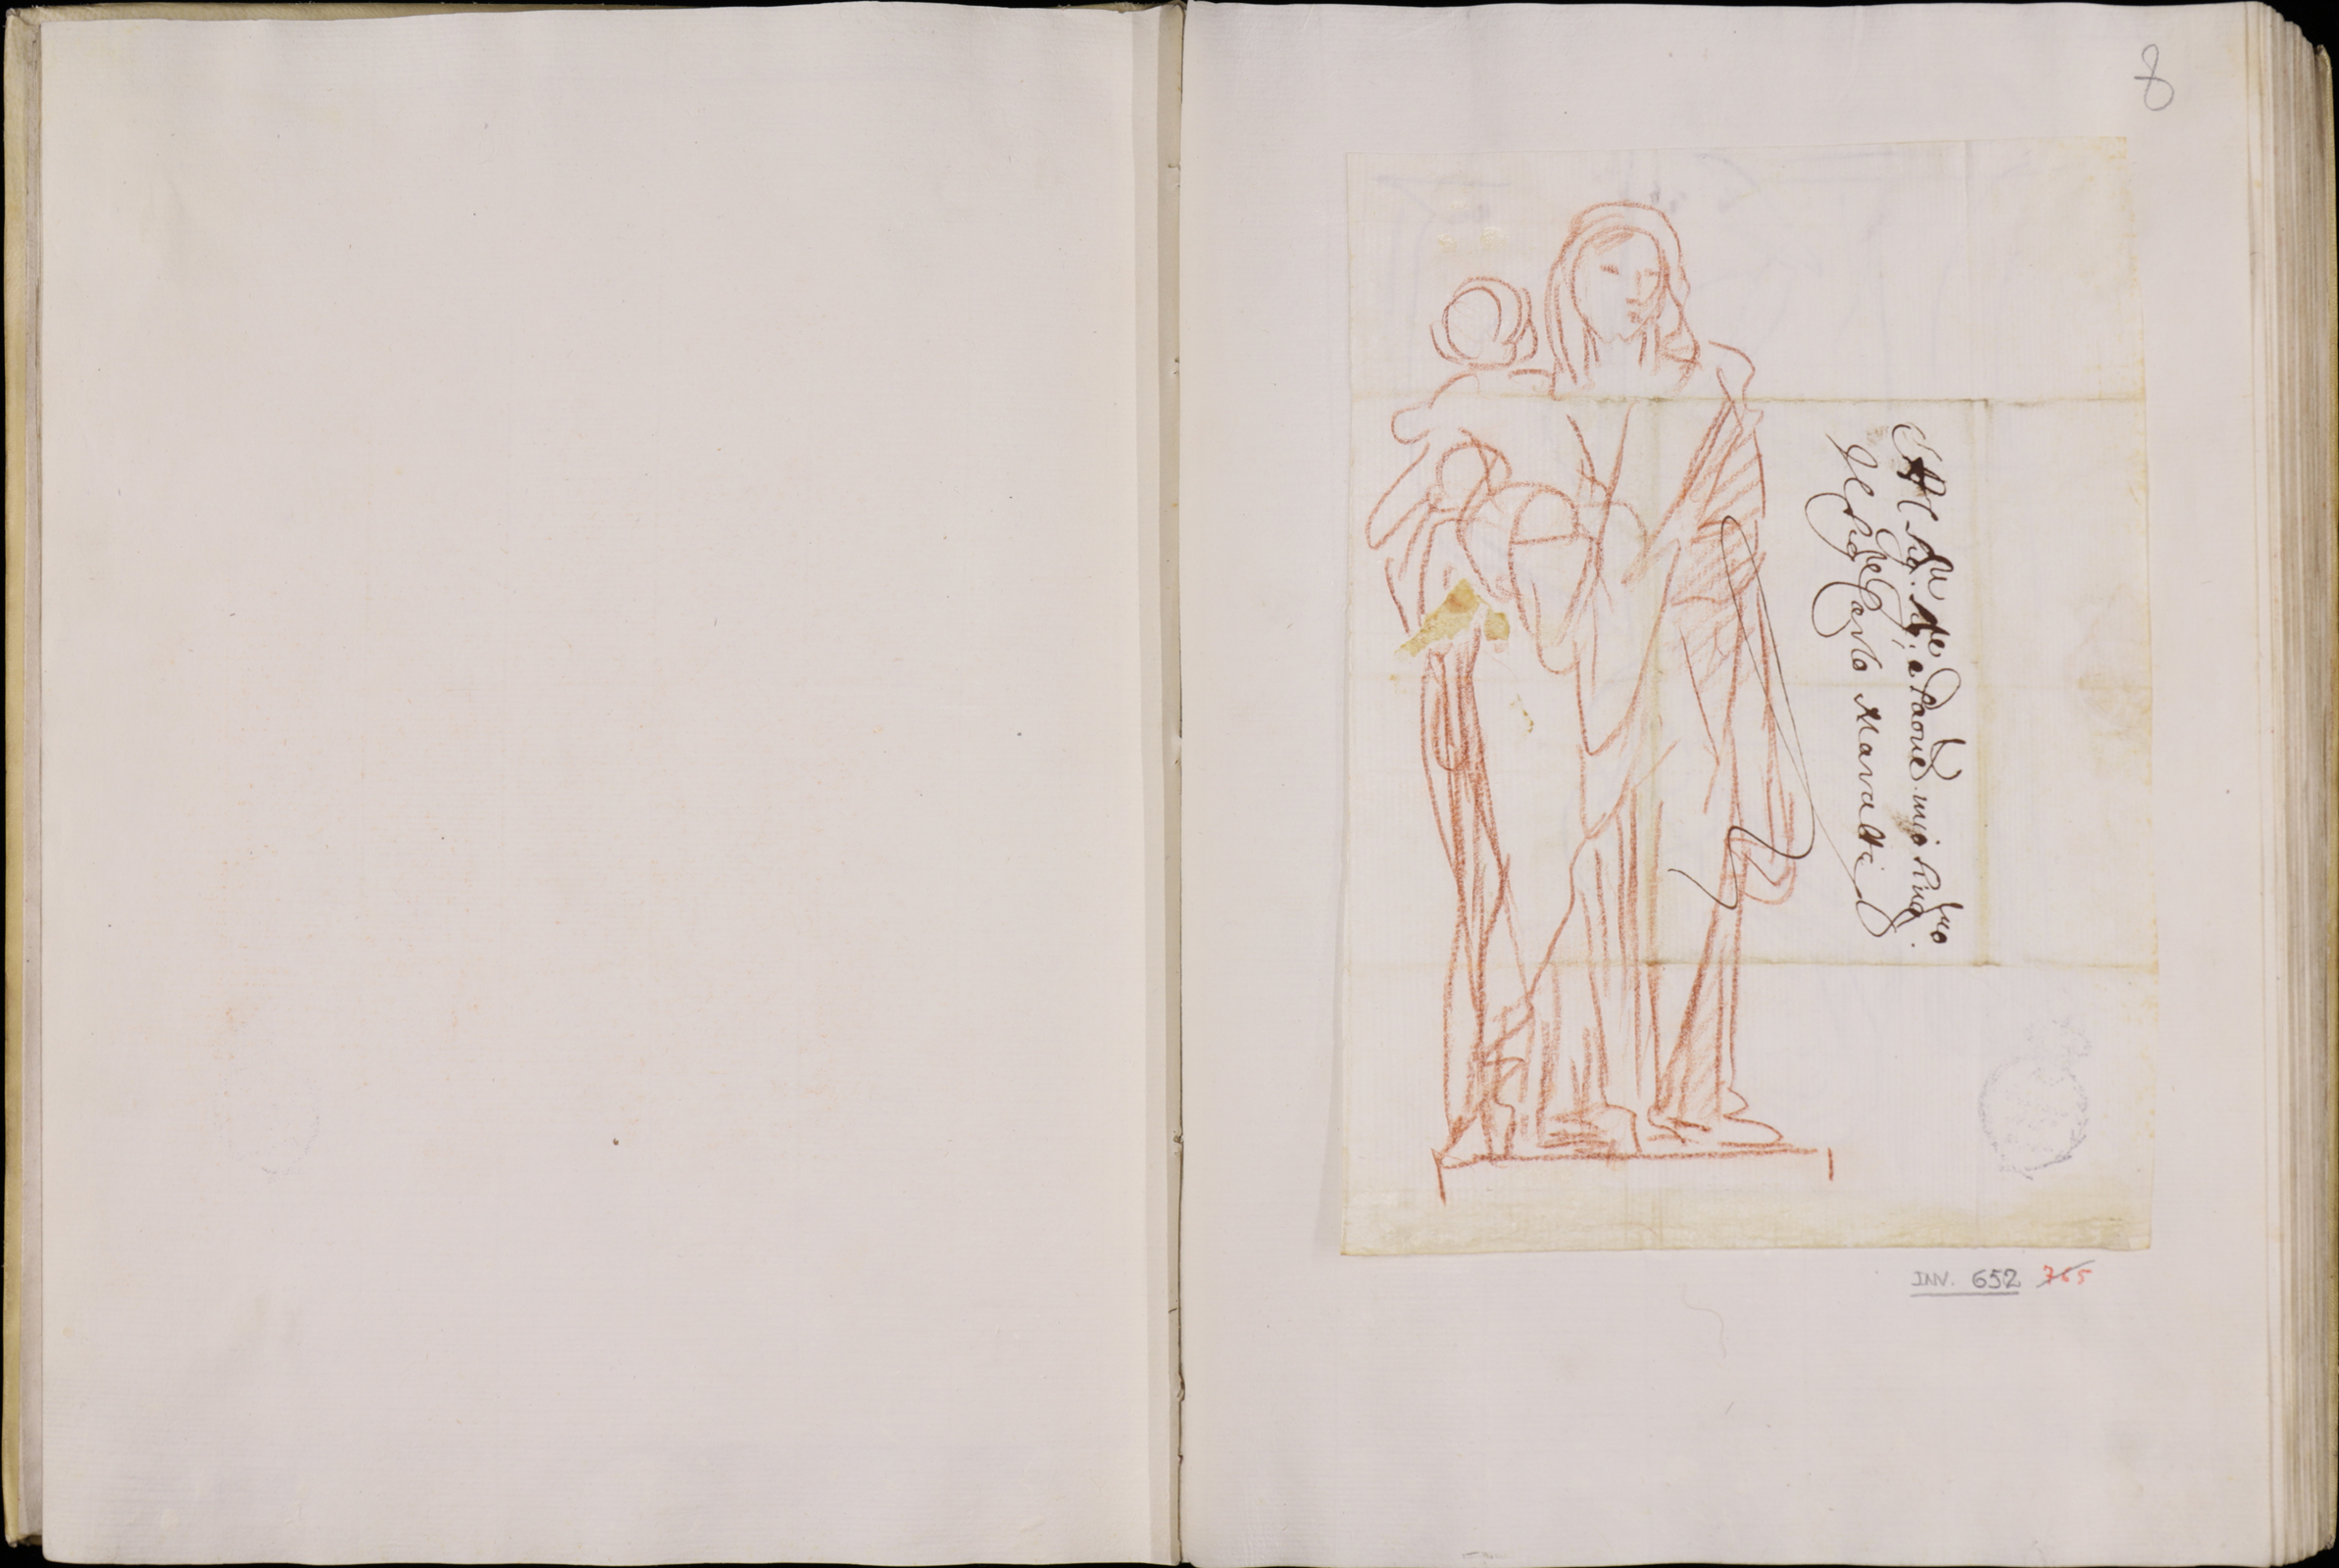 8
Al Sig.re Sig.re e Padrōe mio Sing.mo
Il Sig.re Carlo Maratti
INV. 652 765